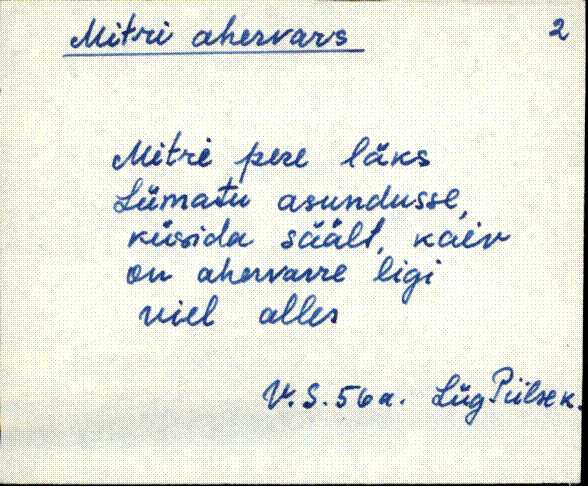 Mitri ahervars 2
Mitri pere läks
Lümatu asundusse,
küsida säält, kaiv
on ahervarre ligi
viel alles
V.S. 56 a. Lüg Pülse k.